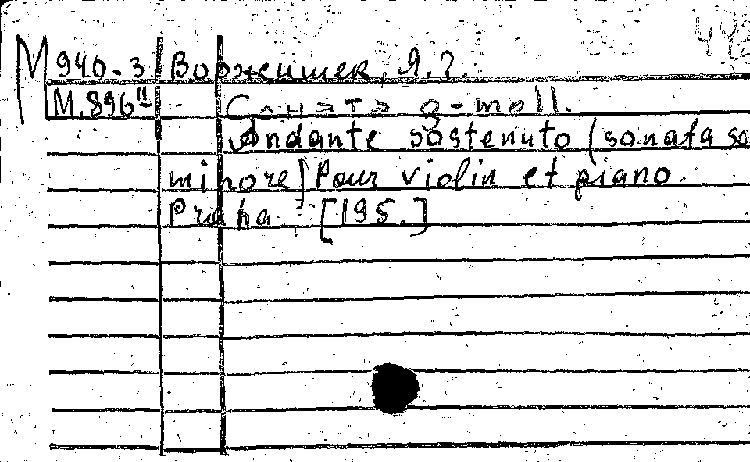 М 940-3 Воржишек, Я.?.
М.896
Соната g-moll.
Andante sostenuto (sonata so
minore) Pour violin et piano.
Praha [195.]